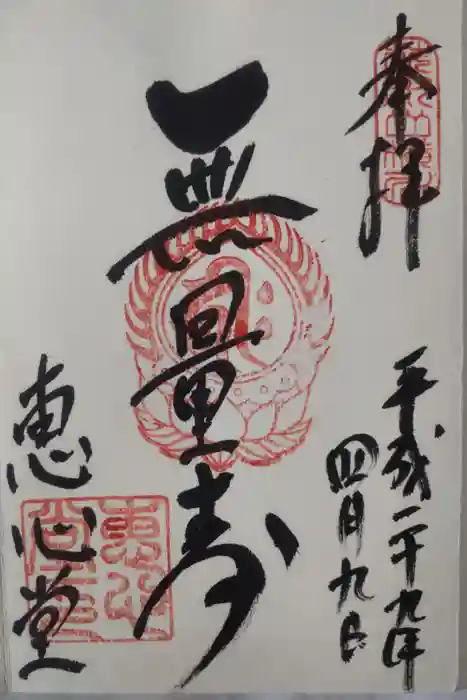 奉拝
平成二十九年
四月九日
無量寿
恵心堂